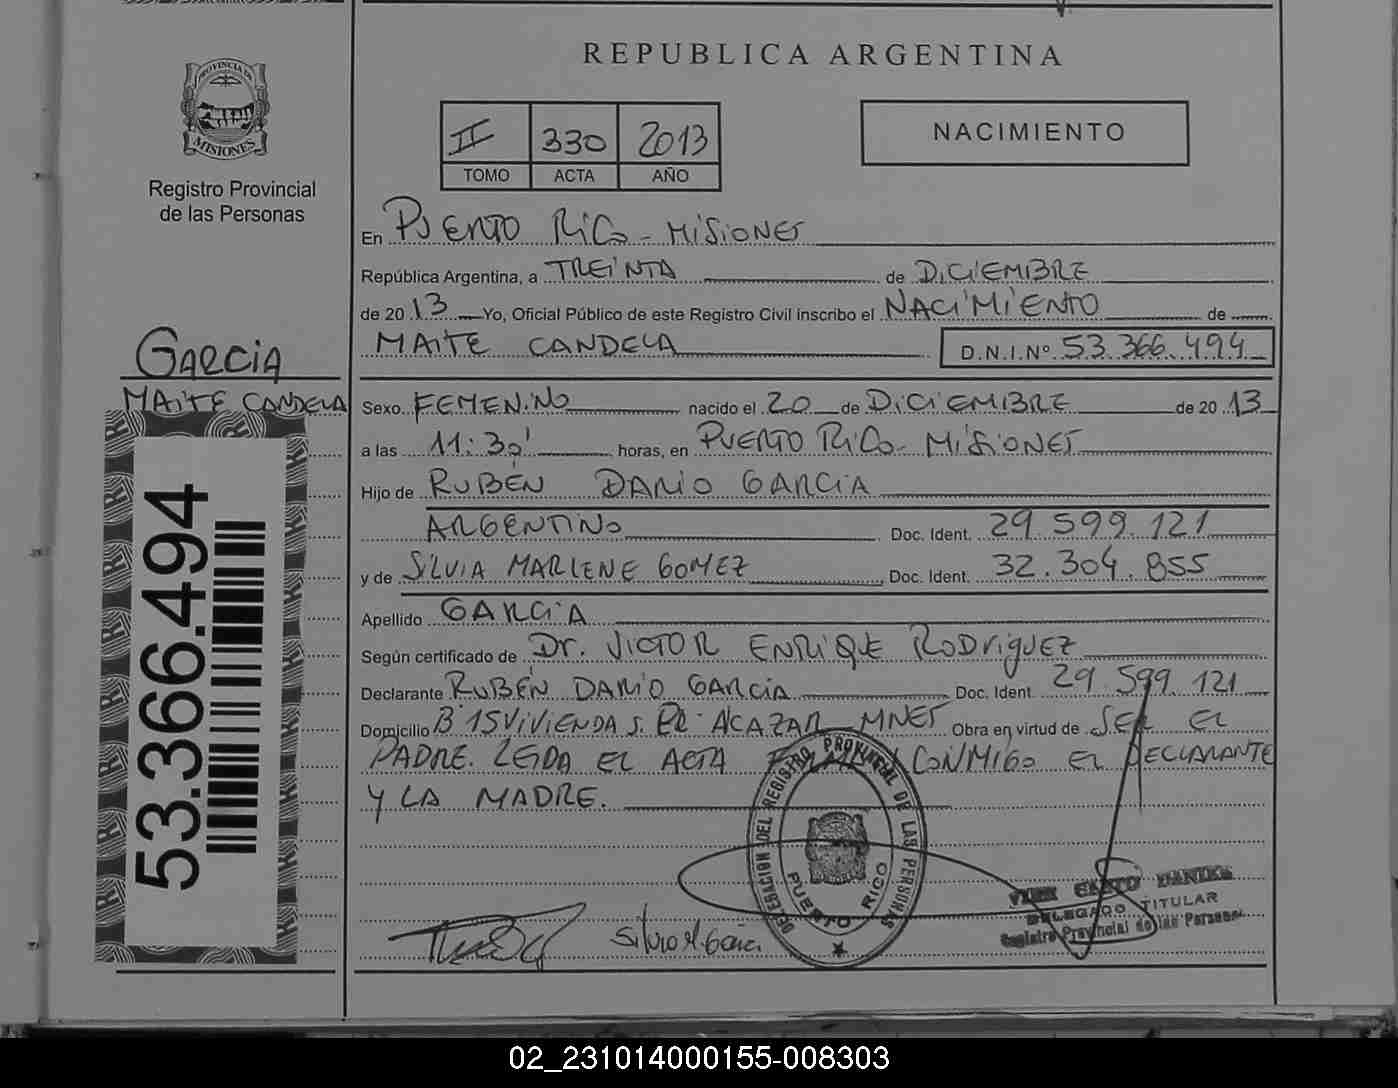 REPUBLICA ARGENTINA
PROVINCIA DE
MISIONES
Registro Provincial
de las Personas
II 330 2013
TOMO ACTA AÑO
NACIMIENTO
En PUERTO RICO - MISIONES
República Argentina, a TREINTA de DICIEMBRE
de 20 13 Yo, Oficial Público de este Registro Civil inscribo el NACIMIENTO de
MAITE CANDELA D.N.I.Nº 53.366.494
GARCIA
MAITE CANDELA
53.366.494
Sexo FEMENINO nacido el 20 de DICIEMBRE de 20 13
a las 11:30' horas, en PUERTO RICO - MISIONES
Hijo de RUBÉN DARIO GARCIA
ARGENTINO Doc. Ident. 29.599.121
y de SILVIA MARLENE GOMEZ Doc. Ident. 32.304.855
Apellido GARCIA
Según certificado de Dr. VICTOR ENRIQUE RODRIGUEZ
Declarante RUBÉN DARIO GARCIA Doc. Ident. 29.599.121
Domicilio Bº 15 VIVIENDAS. EL ALCAZAR MNES Obra en virtud de SER EL
PADRE. LEIDA EL ACTA CONMIGO EL DECLARANTE
Y LA MADRE.
DELEGACION DEL REGISTRO PROVINCIAL DE LAS PERSONAS
PUERTO RICO
DELEGADO TITULAR
Registro Provincial de las Personas
02_231014000155-008303